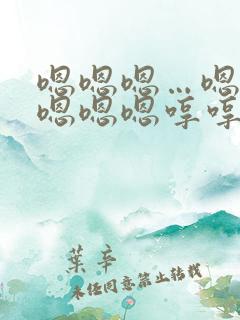 嗯嗯嗯…嗯
嗯嗯嗯哼哼
葉辛
未经同意禁止转载